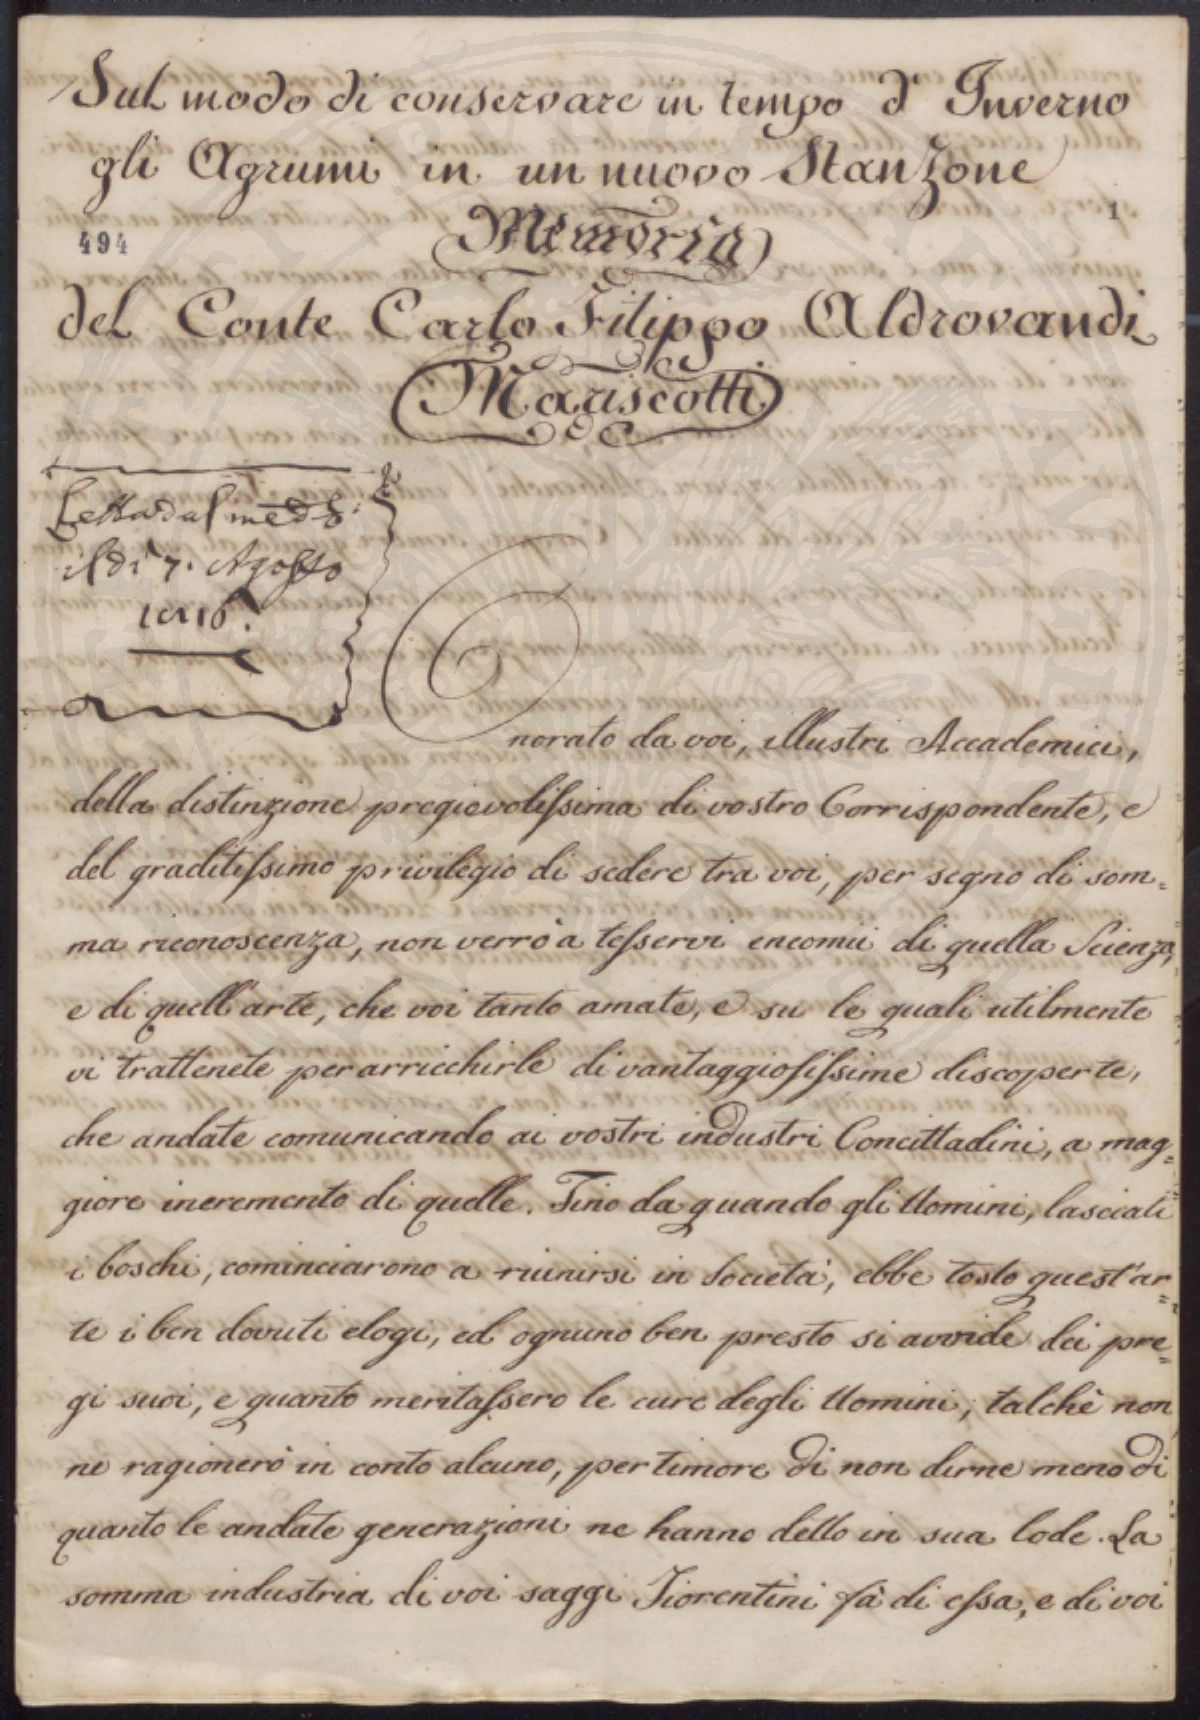 Sul modo di conservare in tempo d'Inverno
gli Agrumi in un nuovo Stanzone
1
494
Memoria
del Conte Carlo Filippo Aldrovandi
Mariscotti
Letta dal med.º
il dì 7. Agosto
1816.
Onorato da voi, illustri Accademici,
della distinzione pregievolissima di vostro Corrispondente, e
del graditissimo privilegio di sedere tra voi, per segno di som=
ma riconoscenza, non verrò a tesservi encomii di quella Scienza,
e di quell'arte, che voi tanto amate, e su le quali utilmente
vi trattenete per arricchirle di vantaggiosissime discoperte,
che andate comunicando ai vostri industri Concittadini, a mag=
giore incremento di quelle. Fino da quando gli Uomini, lasciati
i boschi, cominciarono a riunirsi in Società, ebbe tosto quest'ar=
te i ben dovuti elogi, ed ognuno ben presto si avvide dei pre=
gi suoi, e quanto meritassero le cure degli Uomini; talchè non
ne ragionerò in conto alcuno, per timore di non dirne meno di
quanto le andate generazioni ne hanno detto in sua lode. La
somma industria di voi saggi Fiorentini fà di essa, e di voi